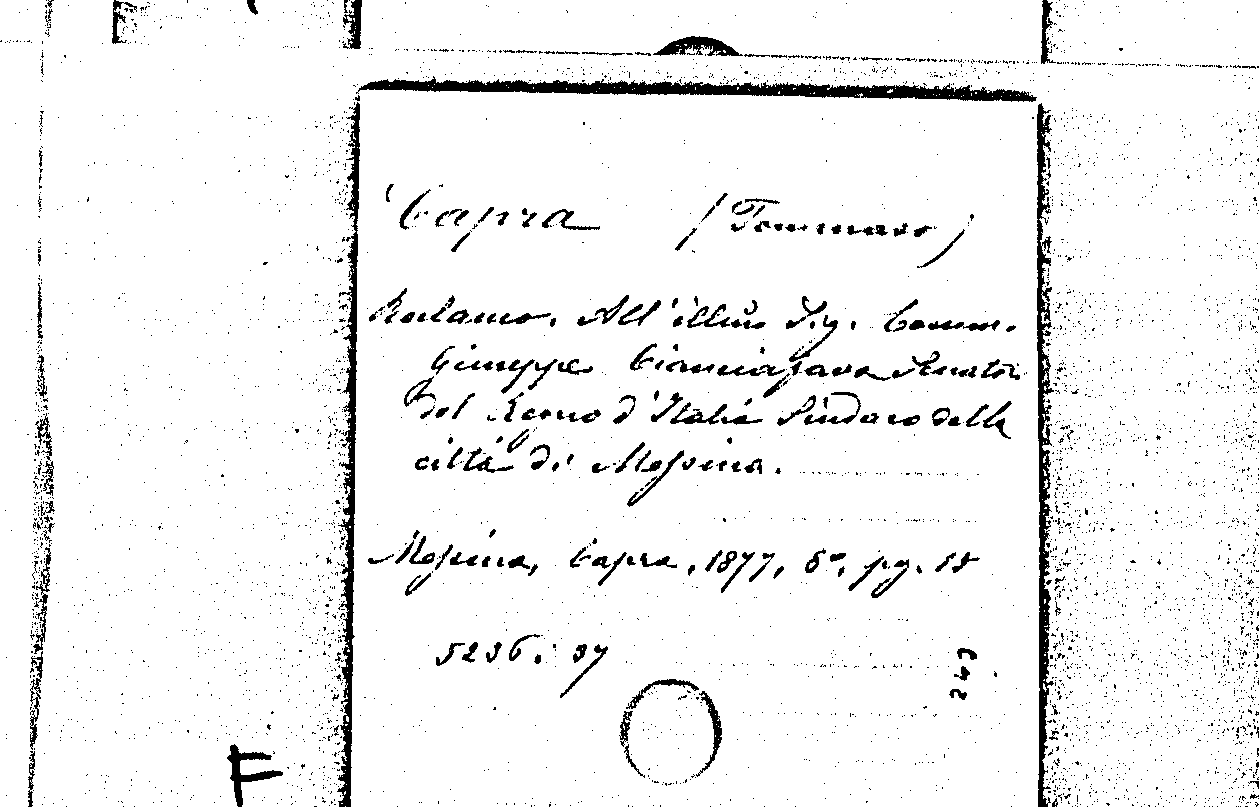 Capra (Tommaso)
Reclamo. All'illmo Sig. Comm.
Giuseppe Cianciafara Senatore
del Regno d'Italia Sindaco della
città di Messina.
Messina, Capra, 1877, 8°, pg. 18
5236. 37
243
F